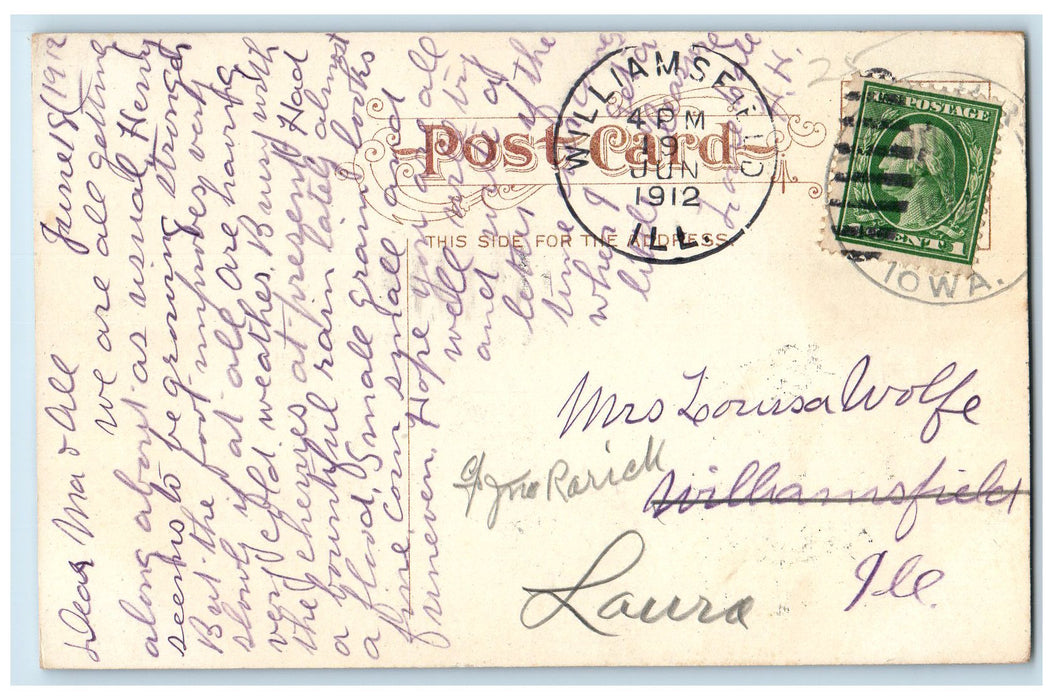 June 18/1912
Dear Ma & All
We are all getting
along about as usual Henry
seems to be growing stronger
But the foot improves very
slowly if at all are having
very cold weather. Busy with
the cherries at present Had
a bountiful rain lately almost
a flood, Small grain looks
fine Corn small and
uneven. Hope you all
well
and
letter of the
time
when I
Post Card
THIS SIDE FOR THE ADDRESS
WILLIAMSFIELD
4 PM
19
JUN
1912
ILL.
U.S. POSTAGE
CENT 1
IOWA.
Mrs Louisa Wolfe
c/o Jno Rarick
Williamsfield
Laura
Ill.